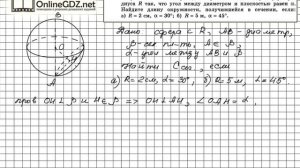 OnlineGDZ.net
диуса R так, что угол между диаметром и плоскостью равен α.
Найдите длину окружности, получившейся в сечении, если:
а) R = 2 см, α = 30°; б) R = 5 м, α = 45°.
B
O
A
Дано сфера с R, AB - диаметр,
β - сек пл-ть, A ∈ β,
α - угол между AB и β
Найти C сек, если
а) R = 2см, α = 30°, б) R = 5м, α = 45°.
пров OH ⊥ β и H ∈ β => OH ⊥ AH, ∠OAH = α,